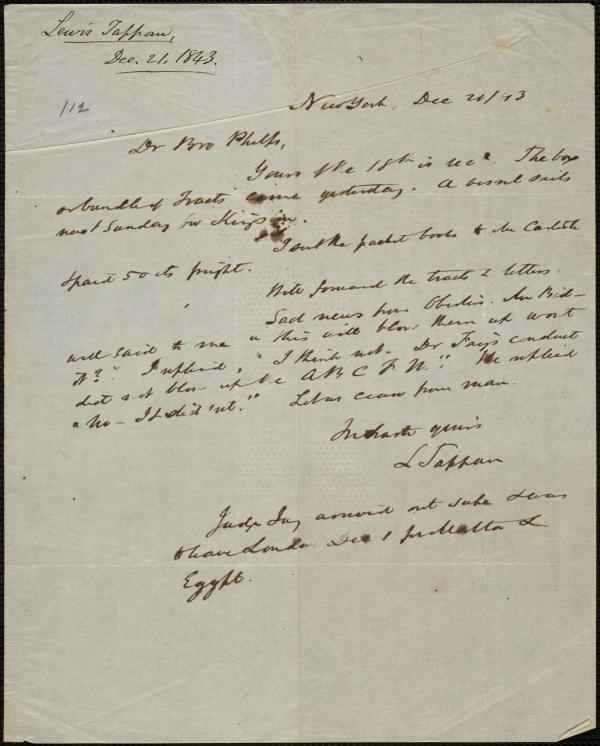 Lewis Tappan,
Dec. 21. 1843.
112
New York, Dec 21/43
Dr Bro Phelps,
Yours of the 18th is recd. The box
or bundle of Tracts came yesterday. A vessel sails
next Sunday for Kingston.
I sent the packet books to Mr Carlisle
& paid 50 cts freight.
Will forward the tracts & letters.
Sad news from Oberlin. Mr Bid-
well said to me "this will blow them up wont
it?" I replied, "I think not. Dr Fay's conduct
did not blow up the A B C F M." He replied
"No – It did n't." Let us cease from man.
In haste yours
L Tappan
Judge Jay arrived out safe & was
to leave London Dec 1 for Malta &
Egypt.